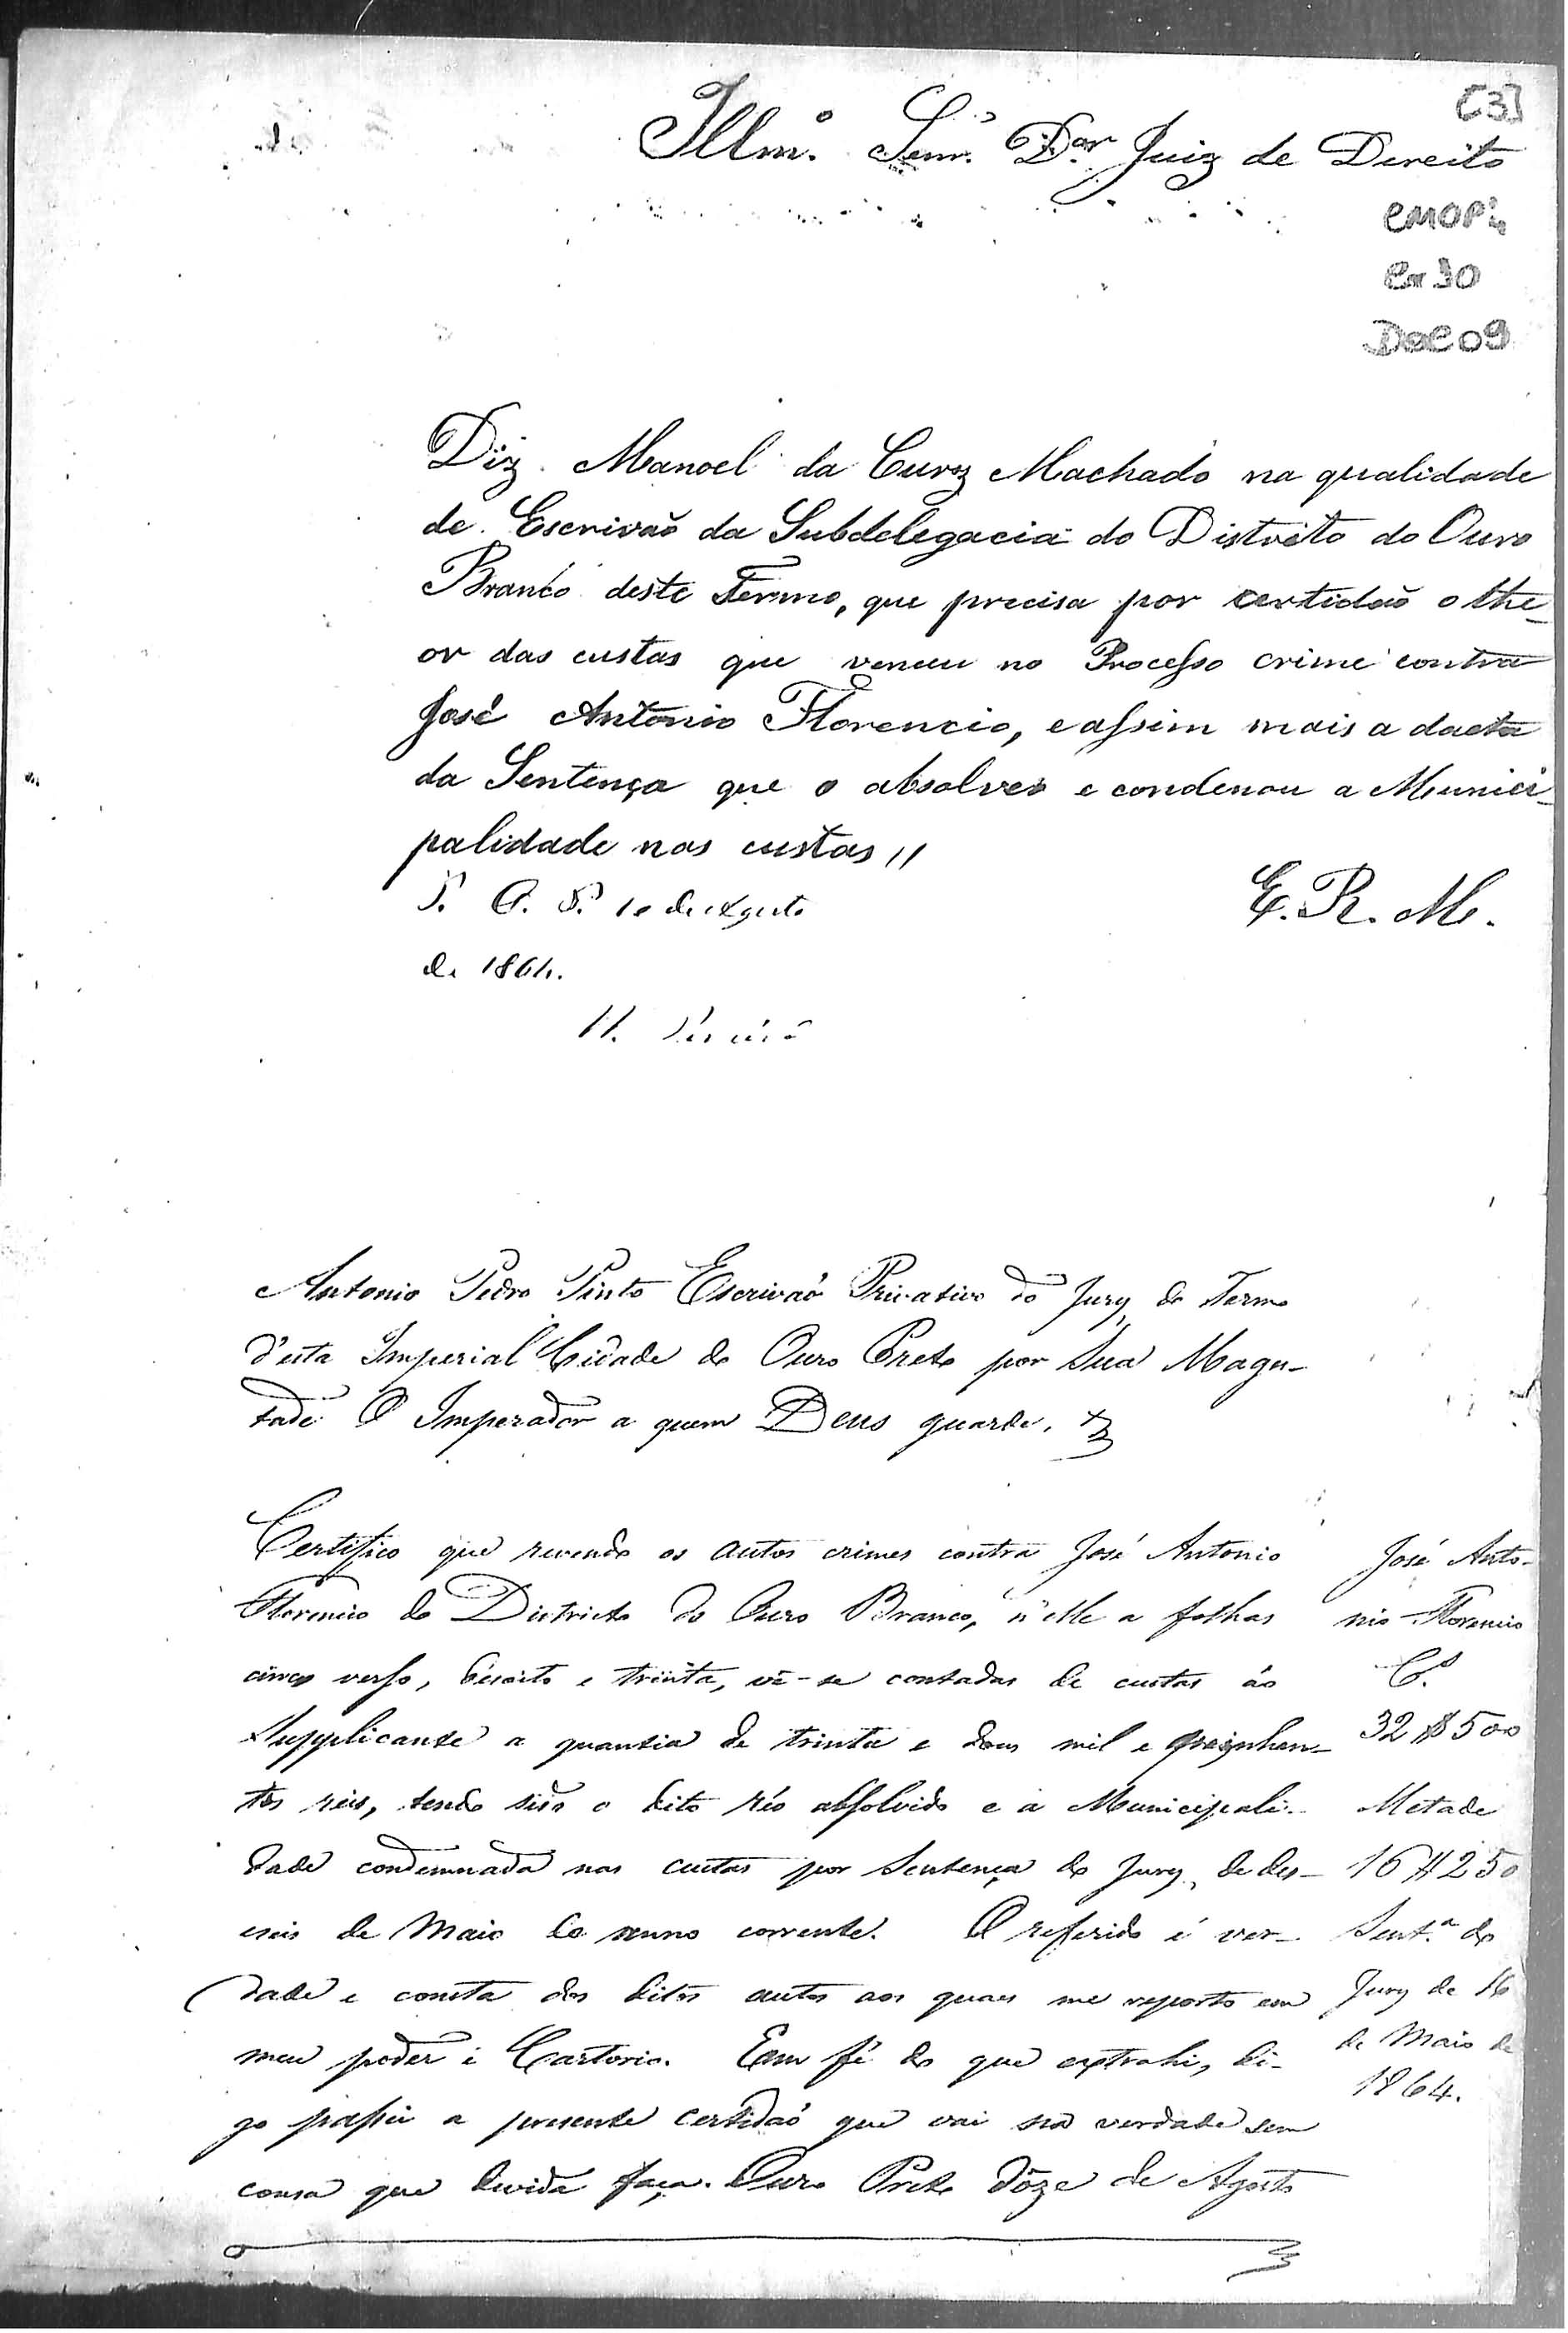 [3]
Illmº. Senrº. Dor. Juiz de Direito
CMOP
Cx 30
DOC 09
Diz Manoel da Curz Machado na qualidade
de Escrivaõ da Subdelegacia do Distrito do Ouro
Branco deste Termo, que precisa por certidaõ o the-
or das custas que venceu no Processo crime contra
José Antonio Florencio, e assim mais a dacta
da Sentença que o absolveo e condenou a Munici-
palidade nas custas //
E. R. M.
P. O. P. 10 de Agosto
de 1864.
Antonio Pedro Pinto Escrivaõ Privativo do Jury, do Termo
d'esta Imperial Cidade do Ouro Preto por Sua Mages-
tade O Imperador a quem Deus guarde.
Certifico que revendo os autos crimes contra José Antonio
Florencio do Districto do Ouro Branco, n'elle a folhas
cinco verso, desoito e trinta, vê-se contadas de custas ao
Supplicante a quantia de trinta e dous mil e quinhen-
tos reis, tendo sido o dito réo absolvido e a Municipali-
dade condemnada nas custas por Sentença do Jury, de des-
eseis de Maio do anno corrente. O referido é ver-
dade e consta dos ditos autos aos quaes me reporto em
meu poder e Cartorio. Em fé do que extrahi, di-
go passei a presente certidaõ que vai na verdade sem
cousa que duvida faça. Ouro Preto dôze de Agosto
José Anto-
nio Florencio
Cs.
32$500
Metade
16$250
Sent.ª do
Jury de 16
de Maio de
1864.